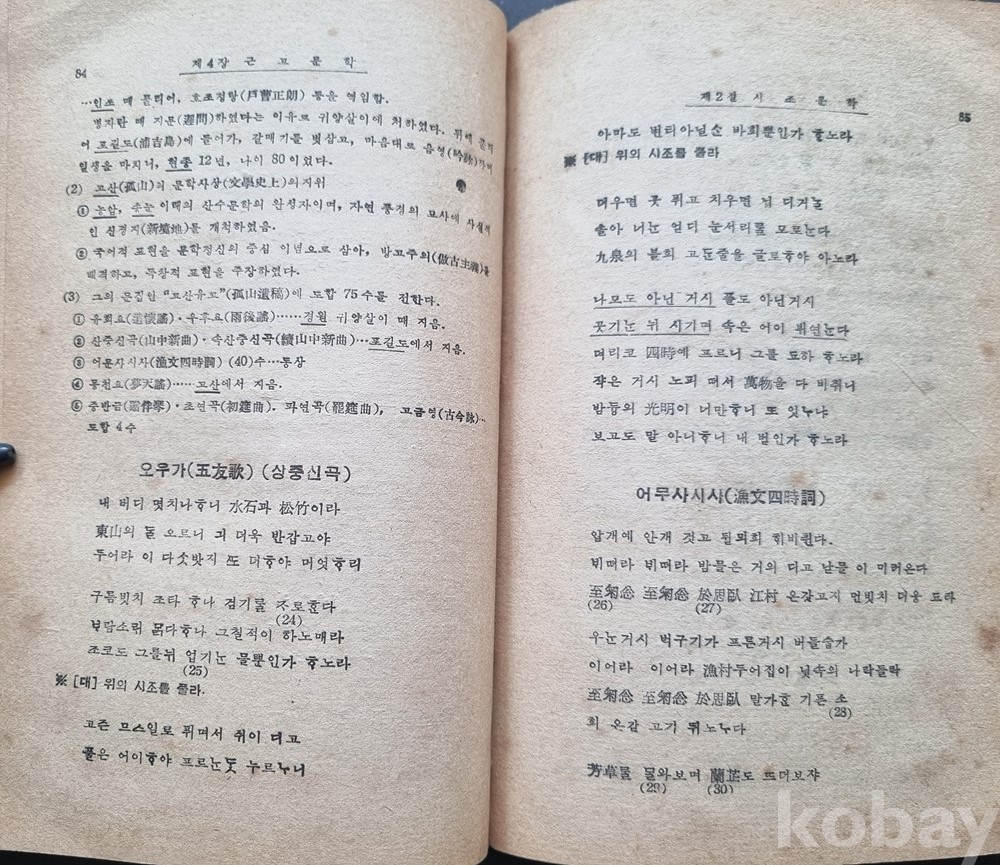 84
제4장 근 고 문 학
…인조 때 풀리어, 호조정랑(戶曹正朗) 등을 역임함.
병자란 때 지문(遲問)하였다는 이유로 귀양살이에 처하였다. 뒤에
어 포길도(浦吉島)에 들어가, 갈매기를 벗삼고, 마음대로 음영(吟詠)
일생을 마지니, 현종 12년, 나이 80이었다.
(2) 고산(孤山)의 문학사상(文學史上)의지위
① 농암, 이래의 산수문학의 완성자이며, 자연 풍경의 묘사에 사실적
인 신경지(新境地)를 개척하였음.
② 국어적 표현을 문학정신의 중심 이념으로 삼아, 방고주의(倣古主義)를
배격하고, 독창적 표현을 주장하였다.
(3) 그의 문집인 “고산유고”(孤山遺稿)에 도합 75수를 전한다.
① 유회요(遣懷謠)·우후요(雨後謠)……경원 귀양살이 때 지음.
② 산중신곡(山中新曲)·속산중신곡(續山中新曲)…포길도에서 지음.
③ 어문사시사(漁文四時詞) (40)수…통상
④ 몽천요(夢天謠)……고산에서 지음.
⑤ 증반금(贈伴琴)·초연곡(初筵曲. 파연곡(罷筵曲), 고금영(古今詠)…
도합 4수
오우가(五友歌) (상중신곡)
내 버디 몃치나ᄒᆞ니 水石과 松竹이라
東山의 ᄃᆞᆯ 오르니 긔 더욱 반갑고야
두어라 이 다ᄉᆞᆺ밧긔 ᄯᅩ 더ᄒᆞ야 머엇ᄒᆞ리
구룸빗치 조타 ᄒᆞ나 검기ᄅᆞᆯ ᄌᆞ로ᄒᆞᆫ다
(24)
ᄇᆞ람소ᄅᆡ ᄆᆞᆰ다ᄒᆞ나 그칠적이 하노매라
조코도 그츨뉘 업기ᄂᆞᆫ 믈뿐인가 ᄒᆞ노라
(25)
※ [대] 위의 시조를 풀라.
고즌 므스일로 퓌며서 쉬이 디고
플은 어이ᄒᆞ야 프르ᄂᆞᆫᄃᆞᆺ 누르ᄂᆞ니
제2절 시 조 문 학
85
아마도 변티아닐ᄉᆞᆫ 바회뿐인가 ᄒᆞ노라
※ [대] 위의 시조를 풀라
더우면 곳 퓌고 치우면 닙 디거ᄂᆞᆯ
솔아 너ᄂᆞᆫ 얻디 눈서리ᄅᆞᆯ 모로ᄂᆞᆫ다
九泉의 블희 고ᄃᆞᆫ줄을 글로ᄒᆞ야 아노라
나모도 아닌 거시 플도 아닌거시
곳기ᄂᆞᆫ 뉘 시기며 속은 어이 뷔연ᄂᆞᆫ다
뎌리코 四時예 프르니 그를 됴하 ᄒᆞ노라
쟈은 거시 노피 떠서 萬物을 다 비취니
밤듕의 光明이 너만ᄒᆞ니 ᄯᅩ 잇ᄂᆞ냐
보고도 말 아니ᄒᆞ니 내 벋인가 ᄒᆞ노라
어무사시사(漁文四時詞)
압개예 안개 것고 뒫뫼희 ᄒᆡ비췬다.
ᄇᆡ떠라 ᄇᆡ떠라 밤믈은 거의 디고 낟믈 이 미러온다
至匊悤 至匊悤 於思臥 江村 온갖고지 먼빗치 더옹 됴타
(26) (27)
우ᄂᆞᆫ거시 벅구기가 프른거시 버들숩가
이어라 이어라 漁村두어집이 닛속의 나락들락
至匊悤 至匊悤 於思臥 말가ᄒᆞᆫ 기픈 소
(28)
희 온갇 고기 뛰노ᄂᆞ다
芳草ᄅᆞᆯ ᄇᆞᆯ와보며 蘭芷도 뜨더보쟈
(29) (30)
kobay